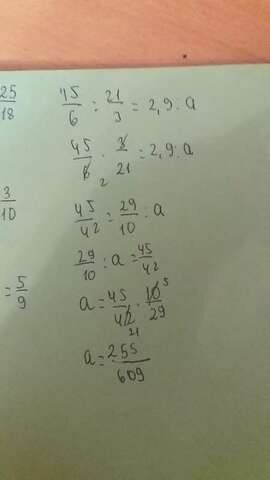 25/18
45/6 : 21/3 = 2,9 : a
45/6 2 · 3/21 = 2,9 : a
3/10
45/42 = 29/10 : a
29/10 : a = 45/42
= 5/9
a = 45/42 21 · 10 5/29
a = 255/609